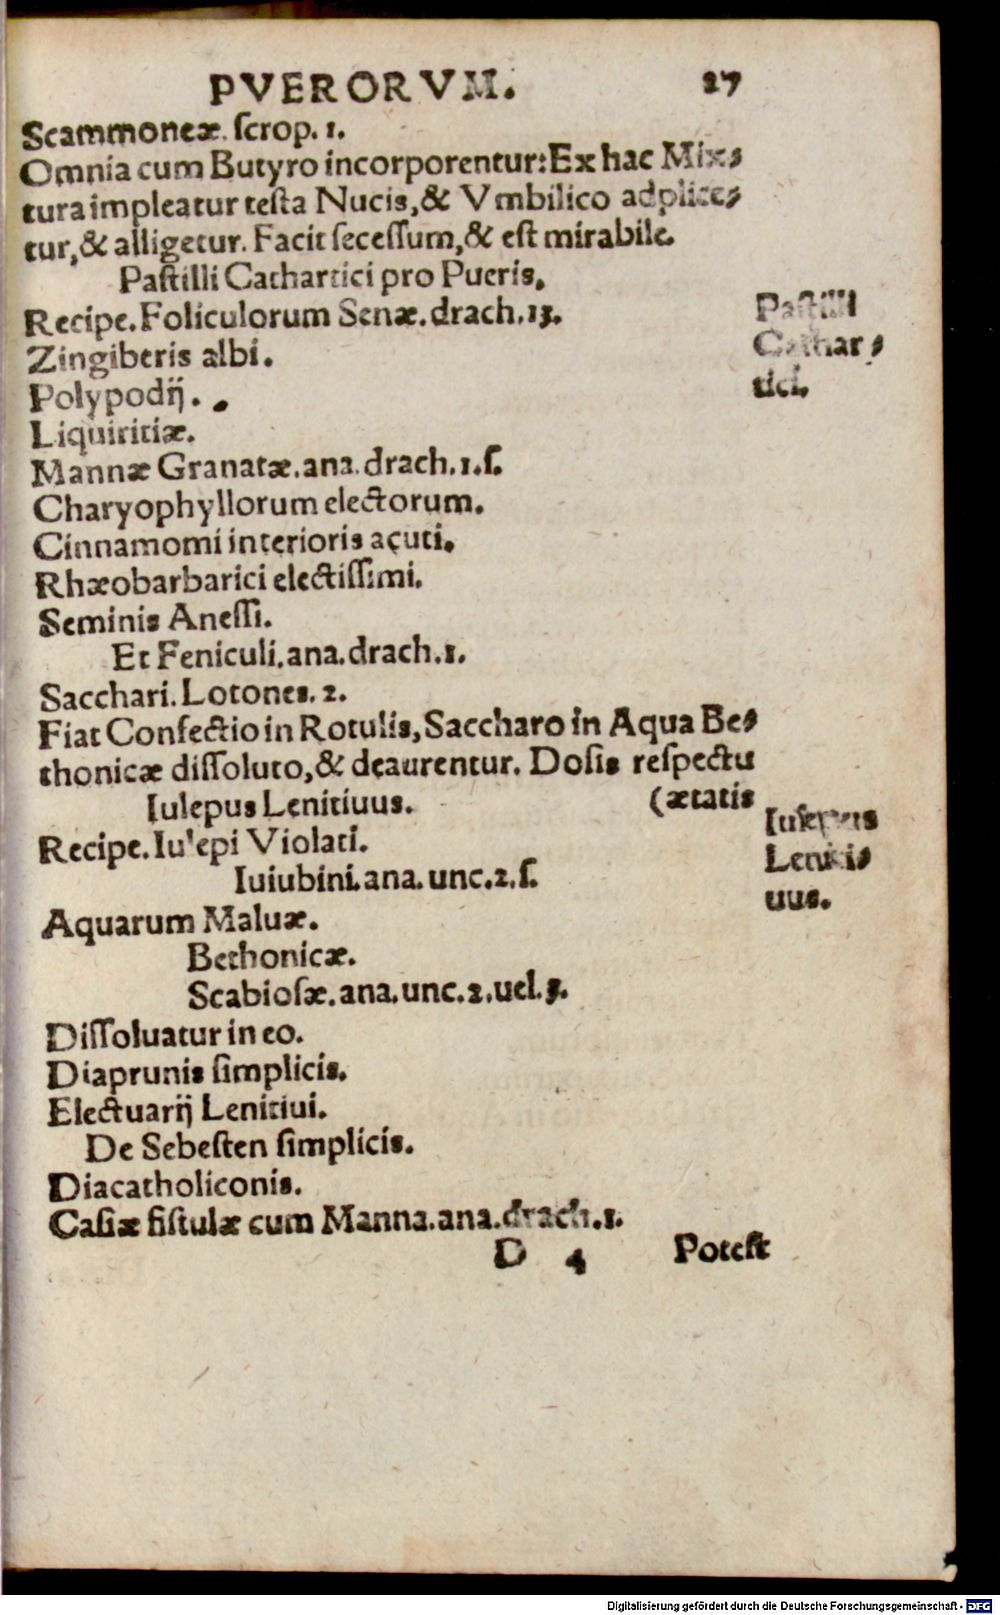 PVERORVM. 27
Scammoneæ. scrop. 1.
Omnia cum Butyro incorporentur: Ex hac Mix-
tura impleatur testa Nucis, & Vmbilico adplice-
tur, & alligetur. Facit secessum, & est mirabile.
Pastilli Cathartici pro Pueris.
Recipe. Foliculorum Senæ. drach. 13.
Zingiberis albi.
Polypodij.
Liquiritiæ.
Mannæ Granatæ. ana. drach. 1. s.
Charyophyllorum electorum.
Cinnamomi interioris acuti.
Rhæobarbarici electissimi.
Seminis Anessi.
Et Feniculi. ana. drach. 1.
Sacchari. Lotones. 2.
Fiat Confectio in Rotulis, Saccharo in Aqua Be-
thonicæ dissoluto, & deaurentur. Dosis respectu
(ætatis
Pastilli
Cathar-
tici.
Iulepus Lenitiuus.
Recipe. Iulepi Violati.
Iuiubini. ana. unc. 2. s.
Aquarum Maluæ.
Bethonicæ.
Scabiosæ. ana. unc. 2. uel. 3.
Dissoluatur in eo.
Diaprunis simplicis.
Electuarij Lenitiui.
De Sebesten simplicis.
Diacatholiconis.
Casiæ fistulæ cum Manna. ana. drach. 1.
Iulepus
Leniti-
uus.
D 4 Potest
Digitalisierung gefördert durch die Deutsche Forschungsgemeinschaft - DFG